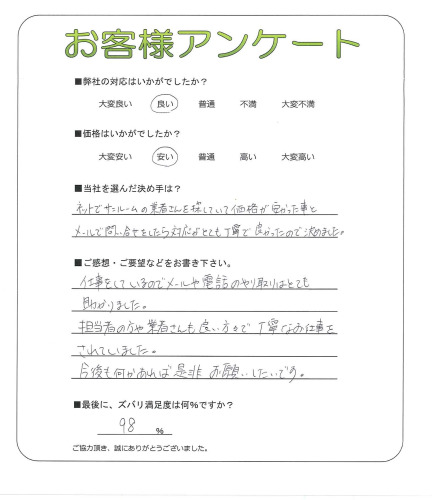 お客様アンケート
■弊社の対応はいかがでしたか？
大変良い 良い 普通 不満 大変不満
■価格はいかがでしたか？
大変安い 安い 普通 高い 大変高い
■当社を選んだ決め手は？
ネットでサンルームの業者さんを探していて価格が安かった事と
メールで問い合せをしたら対応がとても丁寧で良かったので決めました。
■ご感想・ご要望などをお書き下さい。
仕事をしているのでメールや電話のやり取りはとても
助かりました。
担当者の方や業者さんも良い方で丁寧なお仕事を
されていました。
今後も何かあれば是非お願いしたいです。
■最後に、ズバリ満足度は何％ですか？
98 %
ご協力頂き、誠にありがとうございました。